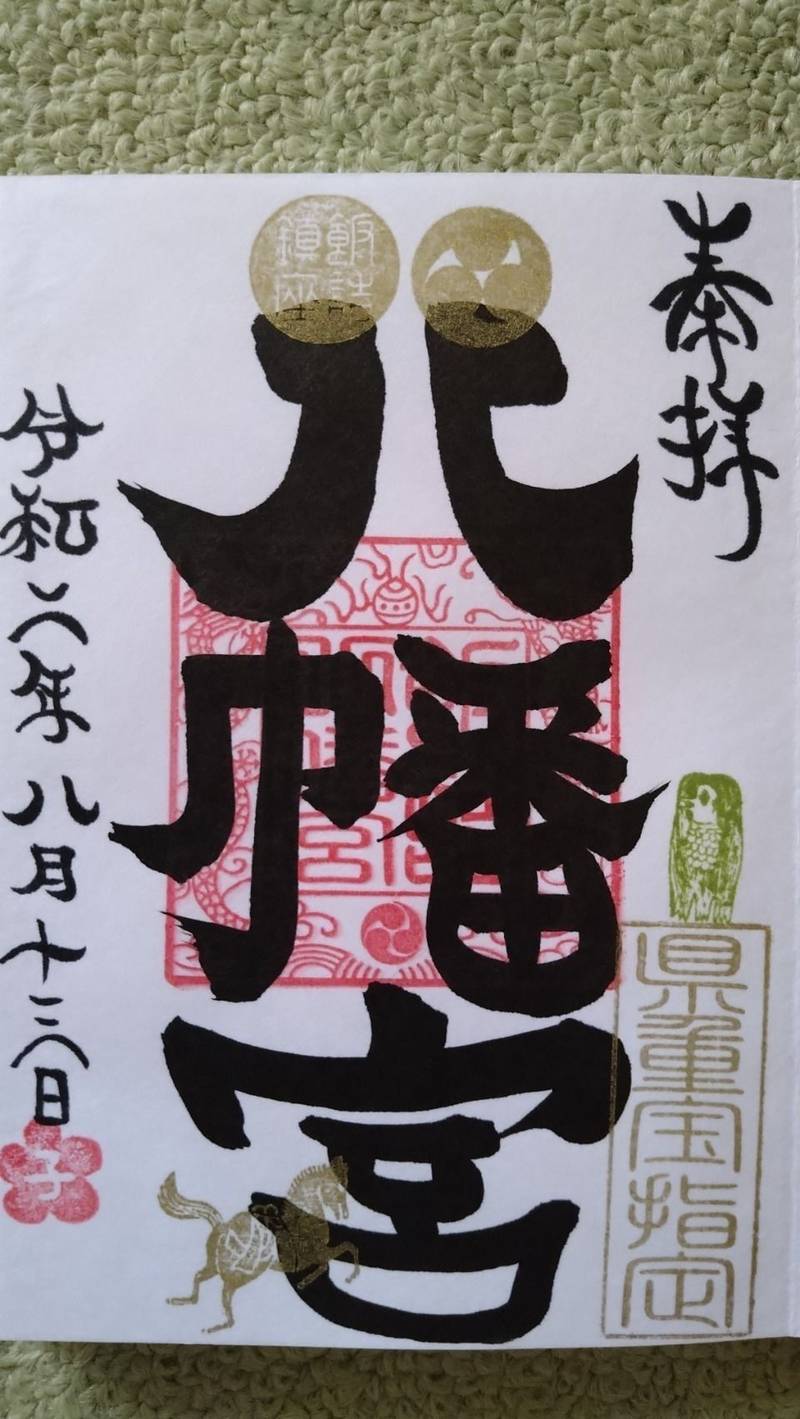 奉拝
県重宝指定
八幡宮
飯詰
鎮座
令和二年八月十三日
子